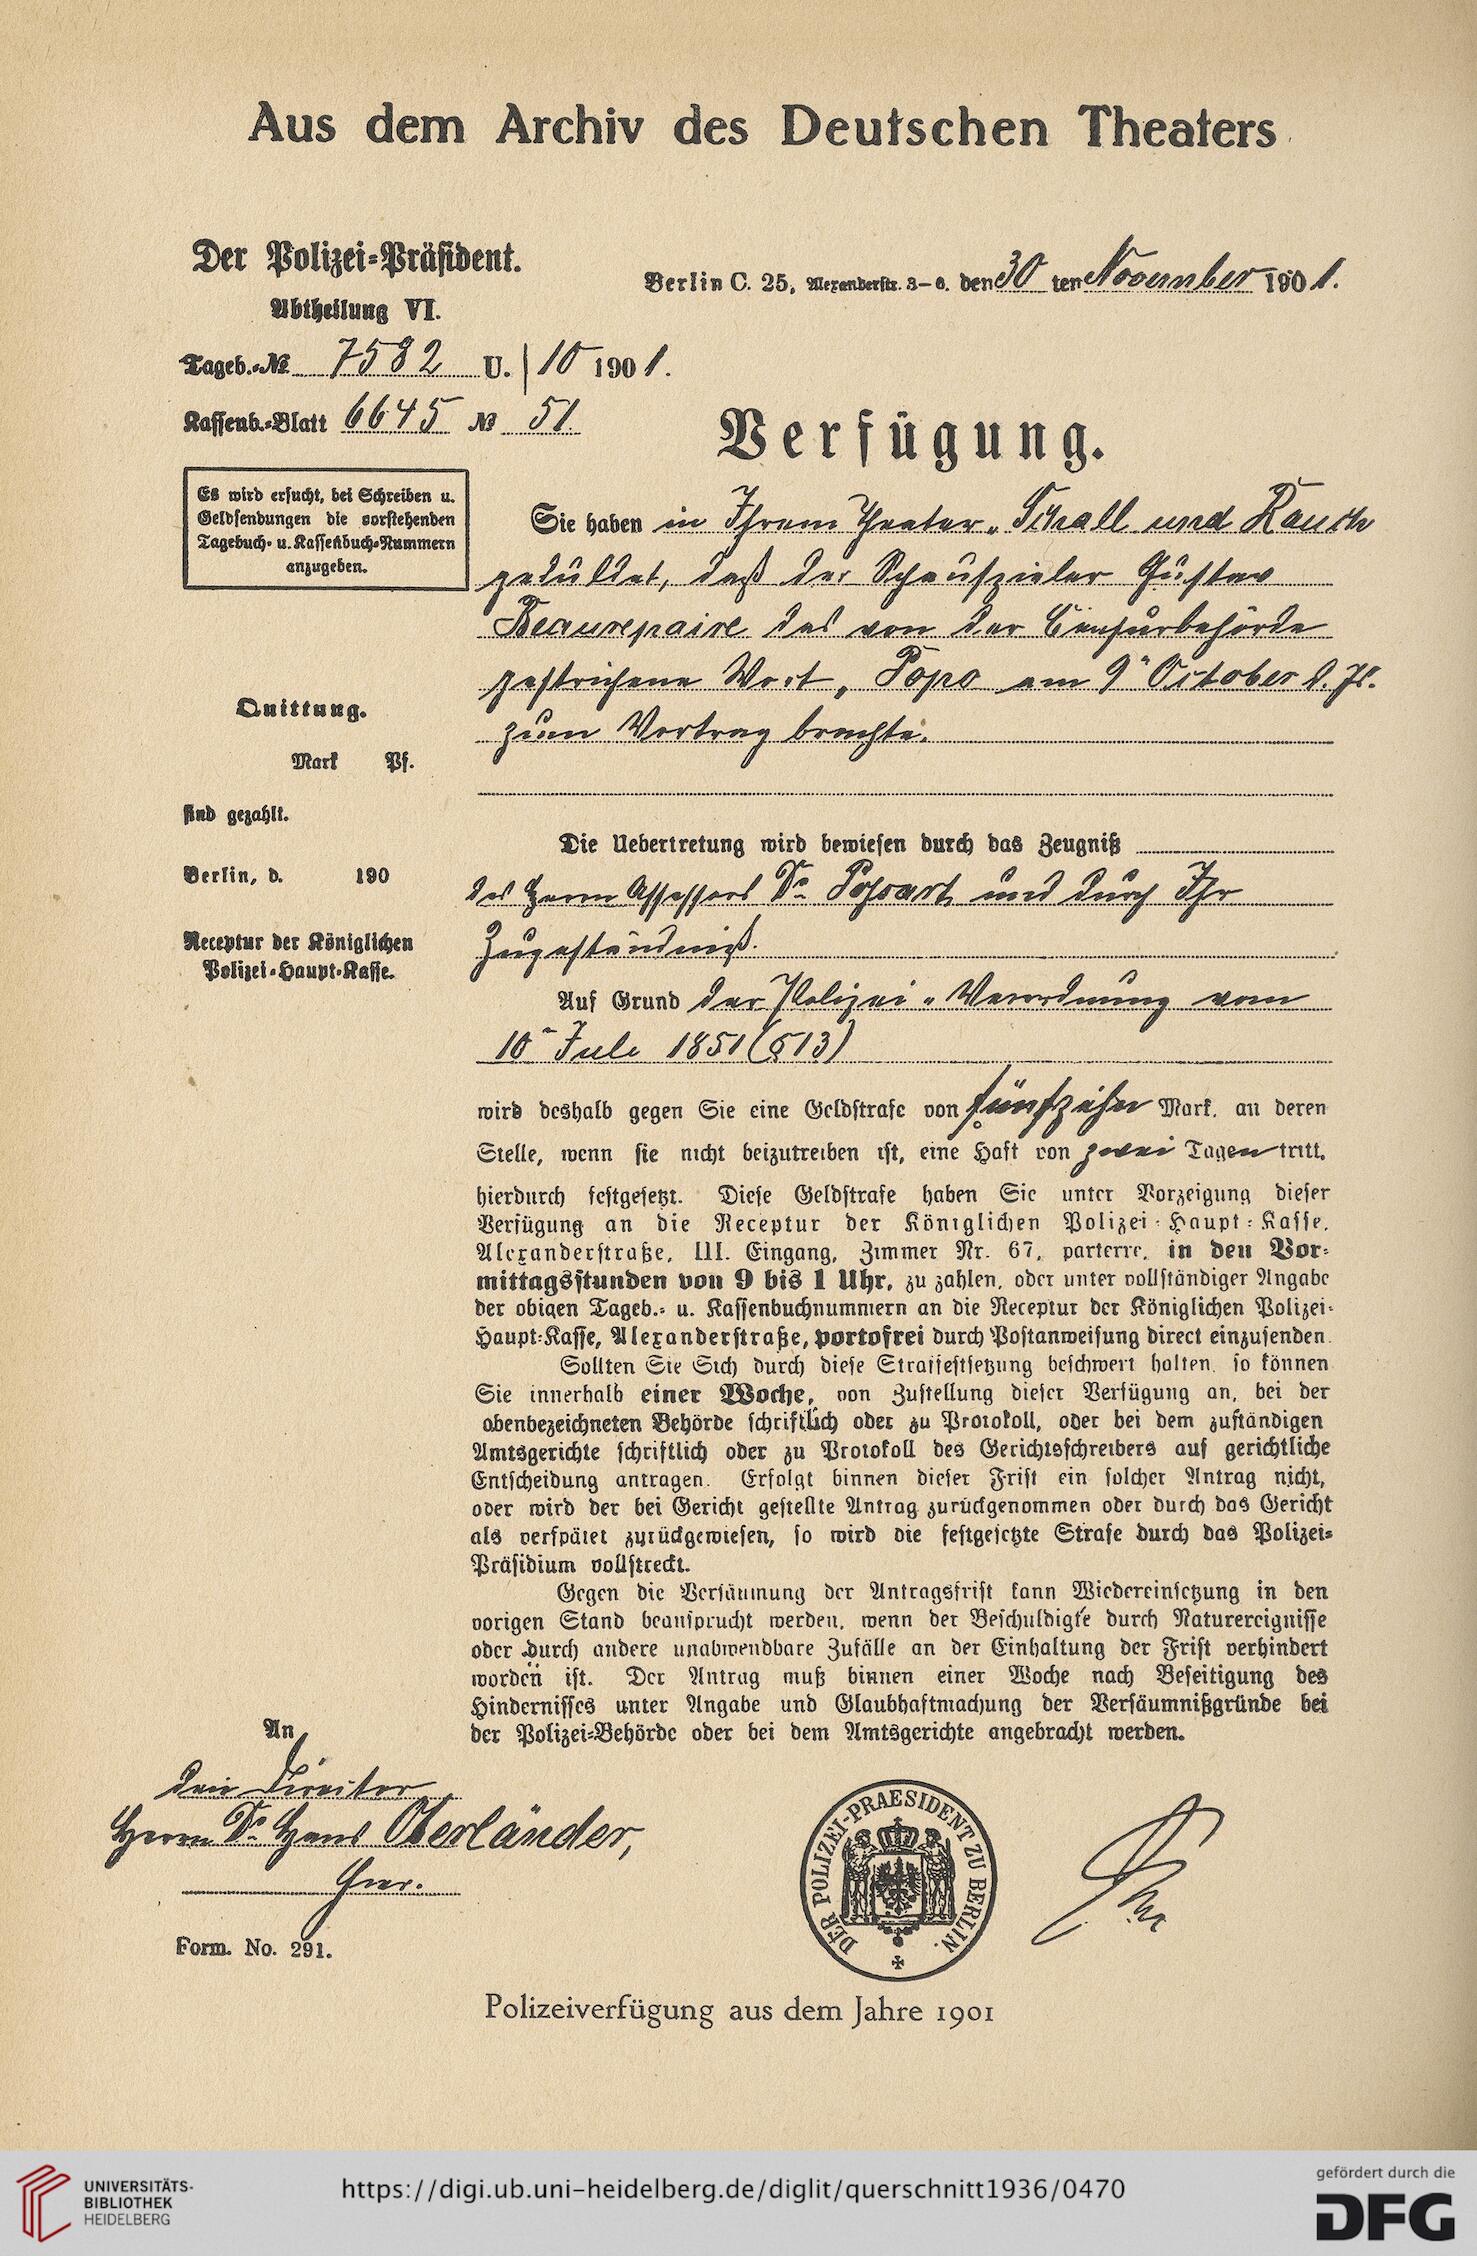 Aus dem Archiv des Deutschen Theaters
Der Polizei-Präsident.
Abtheilung VI.
Berlin C. 25, Alexanderstr. 3–6. den 30 ten November 1901.
Tageb.-№ 7582 U. | 10 1901.
Kassenb.-Blatt 6645 № 51.
Verfügung.
Es wird ersucht, bei Schreiben u.
Geldsendungen die vorstehenden
Tagebuch- u. Kassenbuch-Nummern
anzugeben.
Sie haben in Ihrem Theater „Schall und Rauch
geduldet, daß der Schauspieler Gustav
Beaurepaire das von der Censurbehörde
gestrichene Wort „Popo am 9n October d. Js.
zum Vortrag brachte.
Quittung.
Mark Pf.
sind gezahlt.
Berlin, d. 190
Receptur der Königlichen
Polizei-Haupt-Kasse.
Die Uebertretung wird bewiesen durch das Zeugniß
des Herrn Assessors Dr. Possart und durch Ihr
Zugeständniß.
Auf Grund der Polizei-Verordnung vom
10n Juli 1851 (§ 13)
wird deshalb gegen Sie eine Geldstrafe von fünfzehn Mark, an deren
Stelle, wenn sie nicht beizutreiben ist, eine Haft von zwei Tagen tritt,
hierdurch festgesetzt. Diese Geldstrafe haben Sie unter Vorzeigung dieser
Verfügung an die Receptur der Königlichen Polizei-Haupt-Kasse,
Alexanderstraße, III. Eingang, Zimmer Nr. 67, parterre, in den Vor-
mittagsstunden von 9 bis 1 Uhr, zu zahlen, oder unter vollständiger Angabe
der obigen Tageb.- u. Kassenbuchnummern an die Receptur der Königlichen Polizei-
Haupt-Kasse, Alexanderstraße, portofrei durch Postanweisung direct einzusenden.
Sollten Sie Sich durch diese Straffestsetzung beschwert halten, so können
Sie innerhalb einer Woche, von Zustellung dieser Verfügung an, bei der
obenbezeichneten Behörde schriftlich oder zu Protokoll, oder bei dem zuständigen
Amtsgerichte schriftlich oder zu Protokoll des Gerichtsschreibers auf gerichtliche
Entscheidung antragen. Erfolgt binnen dieser Frist ein solcher Antrag nicht,
oder wird der bei Gericht gestellte Antrag zurückgenommen oder durch das Gericht
als verspätet zurückgewiesen, so wird die festgesetzte Strafe durch das Polizei-
Präsidium vollstreckt.
Gegen die Versäumung der Antragsfrist kann Wiedereinsetzung in den
vorigen Stand beansprucht werden, wenn der Beschuldigte durch Naturereignisse
oder durch andere unabwendbare Zufälle an der Einhaltung der Frist verhindert
worden ist. Der Antrag muß binnen einer Woche nach Beseitigung des
Hindernisses unter Angabe und Glaubhaftmachung der Versäumnißgründe bei
der Polizei-Behörde oder bei dem Amtsgerichte angebracht werden.
An
den Director
Herrn Dr. Hans Oberländer,
hier.
DER POLIZEI-PRAESIDENT ZU BERLIN.
Form. No. 291.
Polizeiverfügung aus dem Jahre 1901
UNIVERSITÄTS-
BIBLIOTHEK
HEIDELBERG
https://digi.ub.uni-heidelberg.de/diglit/querschnitt1936/0470
gefördert durch die
DFG